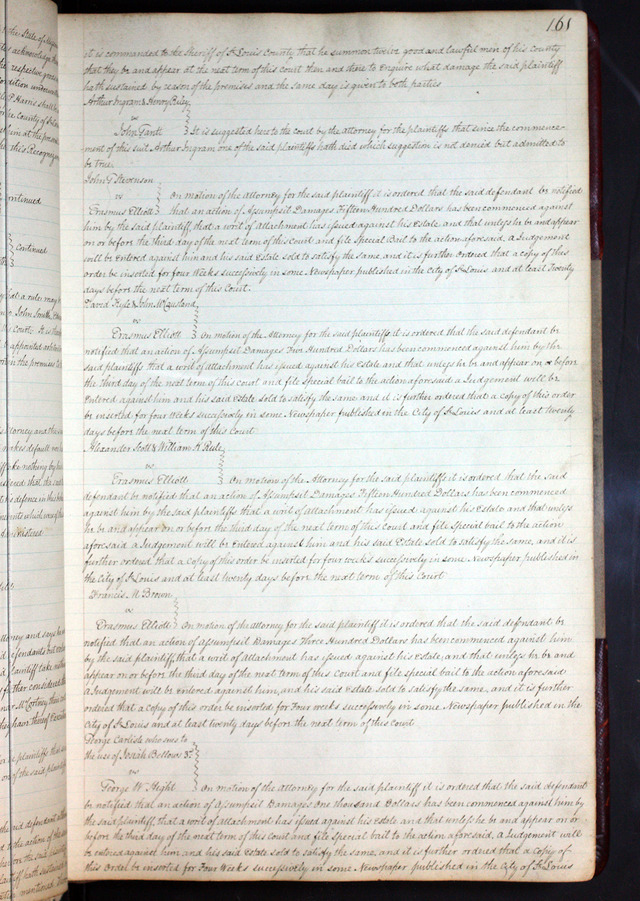 161
it is commanded to the Sheriff of St Louis County that he summon twelve good and lawful men of his county
that they be and appear at the next term of this Court then and there to enquire what damage the said plaintiff
hath sustained by reason of the premises and the same day is given to both parties
Arthur Ingram & Henry
vs
John It is suggested here to the court by the attorney for the plaintiffs that since the commence-
ment of this suit Arthur Ingram one of the said plaintiffs hath died which suggestion is not denied but admitted to
be true.
John Stevenson
vs
Erasmus Elliott On motion of the attorney for the said plaintiff it is ordered that the said defendant be notified
that an action of Assumpsit Damages Fifteen Hundred Dollars has been commenced against
him by the said plaintiff, that a writ of attachment has issued against his Estate and that unless he be and appear
on or before the third day of the next term of this Court and file Special Bail to the action aforesaid, a Judgement
will be Entered against him and his said Estate sold to satisfy the same and it is further Ordered that a copy of this
order be inserted for four Weeks successively in some Newspaper published in the City of St Louis and at least Twenty
days before the next term of this Court.
David Kyle & John McCausland
vs
Erasmus Elliott On motion of the Attorney for the said plaintiffs it is ordered that the said defendant be
notified that an action of Assumpsit Damages Hundred Dollars has been commenced against him by the
said plaintiffs that a writ of attachment has issued against his Estate and that unless he be and appear on or before
the third day of the next term of this court and file special bail to the action aforesaid a Judgement will be
Entered against him and his said Estate sold to satisfy the same and it is further ordered that a copy of this order
be inserted for four Weeks successively in some Newspaper published in the City of St Louis and at least twenty
days before the next term of this Court
Alexander Scott & William K Rule
vs
Erasmus Elliott On motion of the Attorney for the said plaintiffs it is ordered that the said
defendant be notified that an action of Assumpsit Damages Fifteen Hundred Dollars has been commenced
against him by the said plaintiffs that a writ of attachment has issued against his Estate and that unless
he be and appear on or before the third day of the next term of this Court and file Special bail to the action
aforesaid a Judgement will be Entered against him and his said Estate sold to satisfy the same, and it is
further ordered that a copy of this order be inserted for four weeks successively in some Newspaper published in
the City of St Louis and at least twenty days before the next term of this Court
Francis M Brown
vs
Erasmus Elliott On motion of the attorney for the said plaintiff it is ordered that the said defendant be
notified that an action of Assumpsit Damages Three Hundred Dollars has been commenced against him
by the said plaintiff, that a writ of attachment has issued against his Estate, and that unless he be and
appear on or before the third day of the next term of this Court and file special bail to the action aforesaid
a Judgement will be Entered against him, and his said Estate sold to satisfy the same, and it is further
ordered that a copy of this order be inserted for Four weeks successively in some Newspaper published in the
City of St Louis and at least twenty days before the next term of this Court
George Carlisle who sues to
the use of Josiah Bellows 3d
vs
George W. Hight On motion of the attorney for the said plaintiff it is ordered that the said defendant
be notified that an action of Assumpsit Damages One thousand Dollars has been commenced against him by
the said plaintiff that a writ of attachment has issued against his Estate and that unless he be and appear on or
before the third day of the next term of this court and file special bail to the action aforesaid, a Judgement will
be Entered against him, and his said Estate sold to satisfy the same, and it is further ordered that a copy of
this Order be inserted for Four Weeks successively in some Newspaper published in the City of St Louis